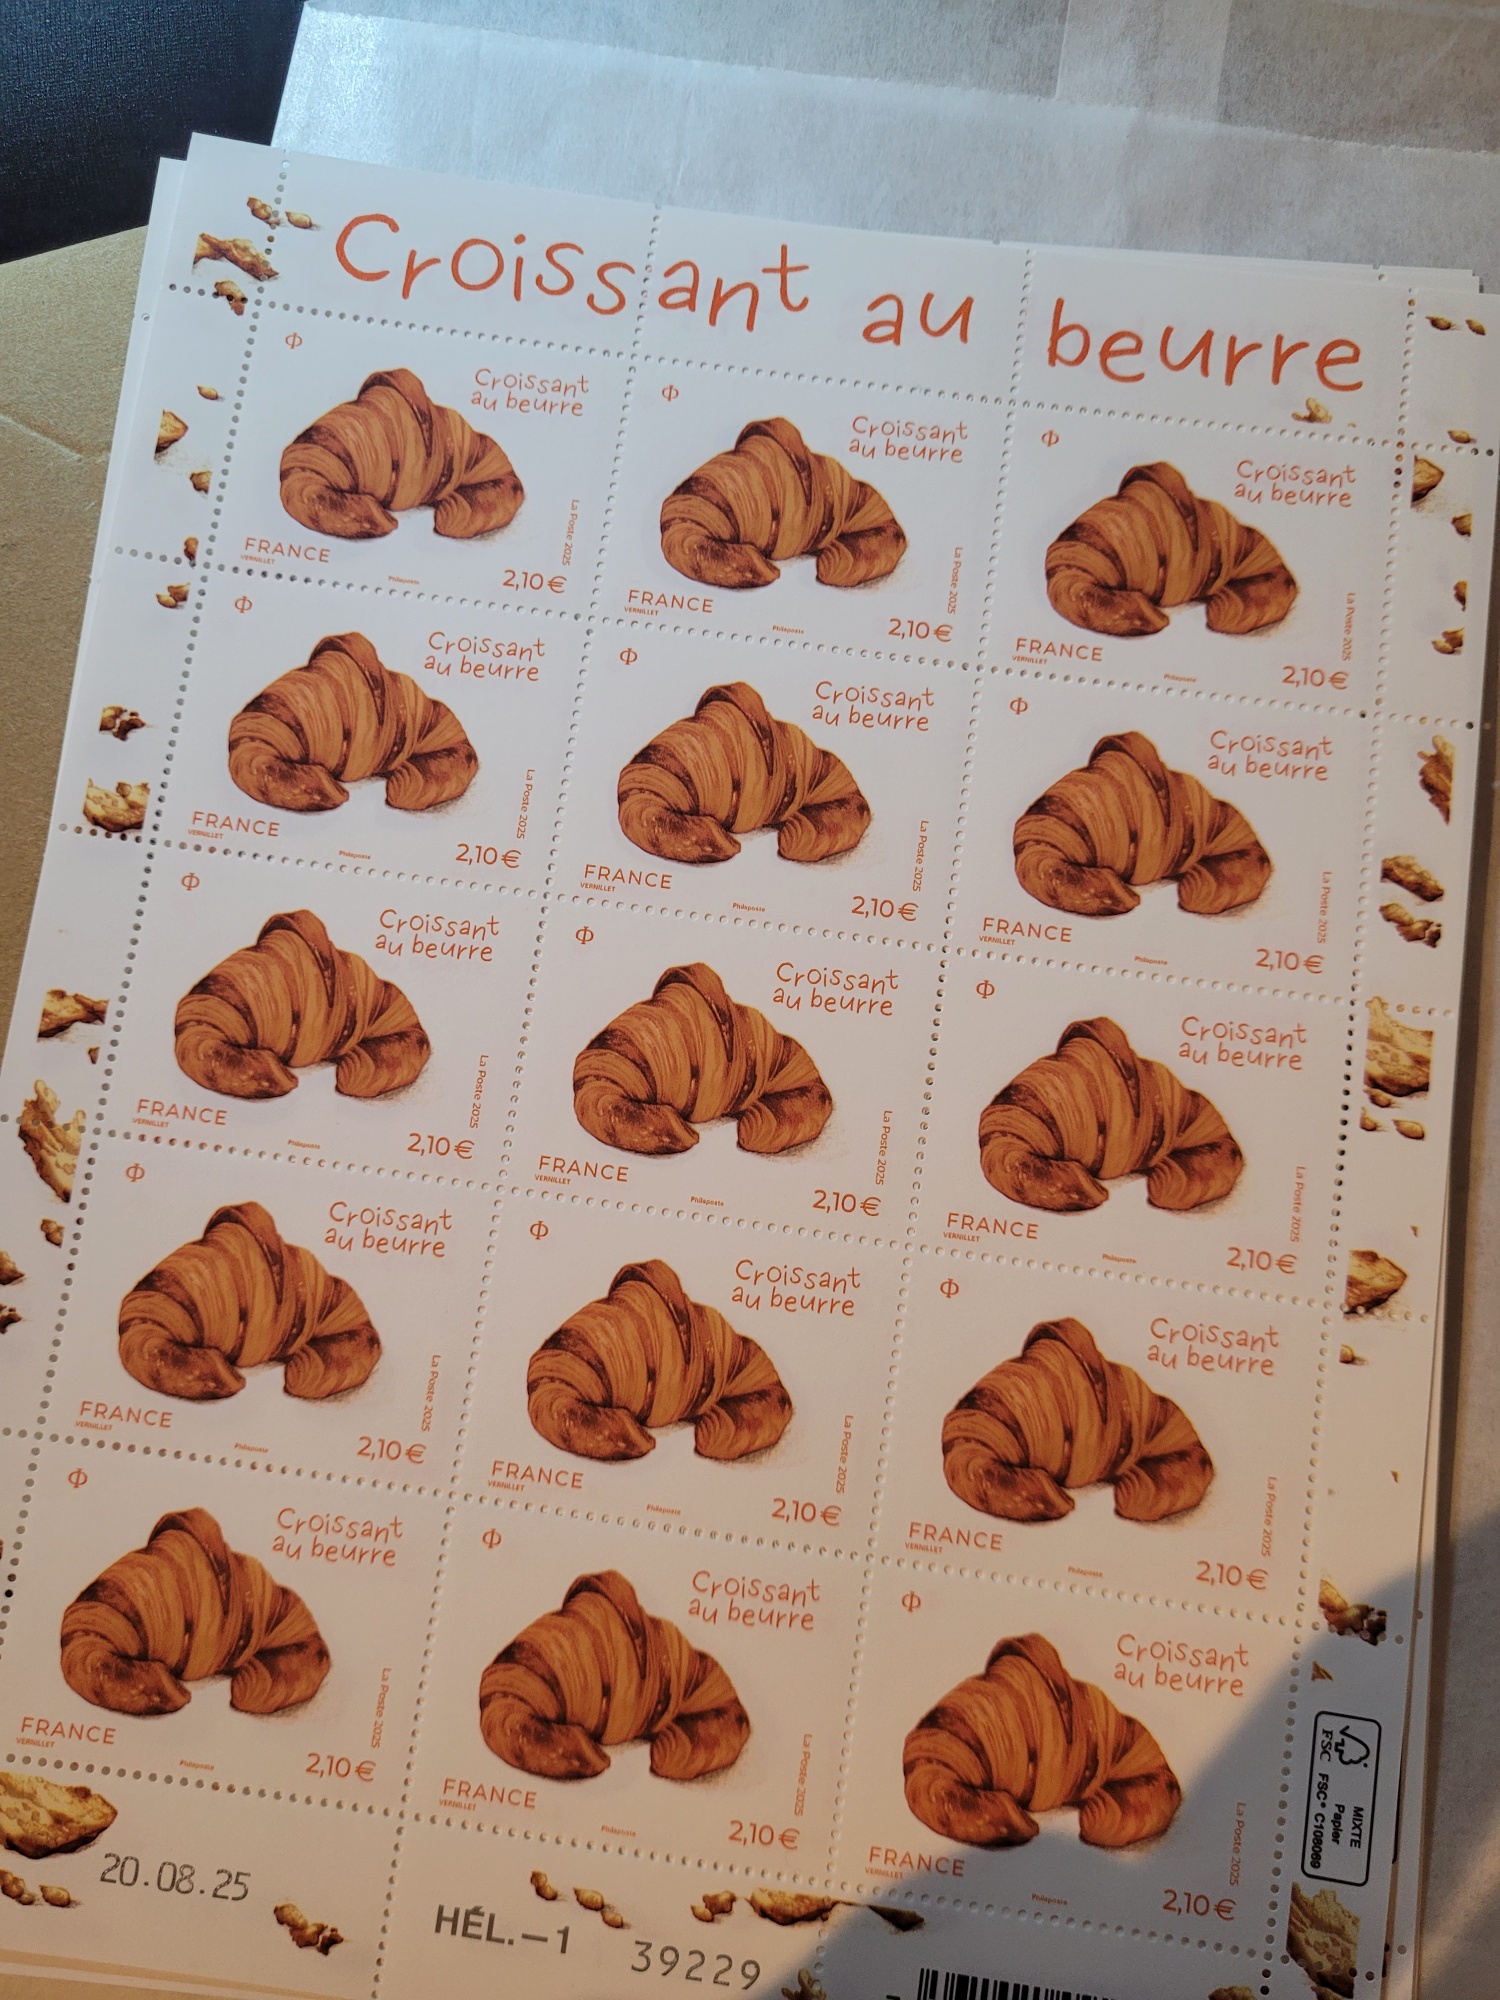 Croissant au beurre
Φ Φ Φ
Croissant
au beurre
La Poste 2025
FRANCE
VERNILLET
Philaposte
2,10 €
Croissant
au beurre
La Poste 2025
FRANCE
VERNILLET
Philaposte
2,10 €
Croissant
au beurre
La Poste 2025
FRANCE
VERNILLET
Philaposte
2,10 €
Φ Φ Φ
Croissant
au beurre
La Poste 2025
FRANCE
VERNILLET
Philaposte
2,10 €
Croissant
au beurre
La Poste 2025
FRANCE
VERNILLET
Philaposte
2,10 €
Croissant
au beurre
La Poste 2025
FRANCE
VERNILLET
Philaposte
2,10 €
Φ Φ Φ
Croissant
au beurre
La Poste 2025
FRANCE
VERNILLET
Philaposte
2,10 €
Croissant
au beurre
La Poste 2025
FRANCE
VERNILLET
Philaposte
2,10 €
Croissant
au beurre
La Poste 2025
FRANCE
VERNILLET
Philaposte
2,10 €
Φ Φ Φ
Croissant
au beurre
La Poste 2025
FRANCE
VERNILLET
Philaposte
2,10 €
Croissant
au beurre
La Poste 2025
FRANCE
VERNILLET
Philaposte
2,10 €
Croissant
au beurre
La Poste 2025
FRANCE
VERNILLET
Philaposte
2,10 €
Φ Φ Φ
Croissant
au beurre
La Poste 2025
FRANCE
VERNILLET
Philaposte
2,10 €
Croissant
au beurre
La Poste 2025
FRANCE
VERNILLET
Philaposte
2,10 €
Croissant
au beurre
La Poste 2025
FRANCE
VERNILLET
Philaposte
2,10 €
FSC
MIXTE
Papier
FSC® C108069
20.08.25
HÉL.–1 39229